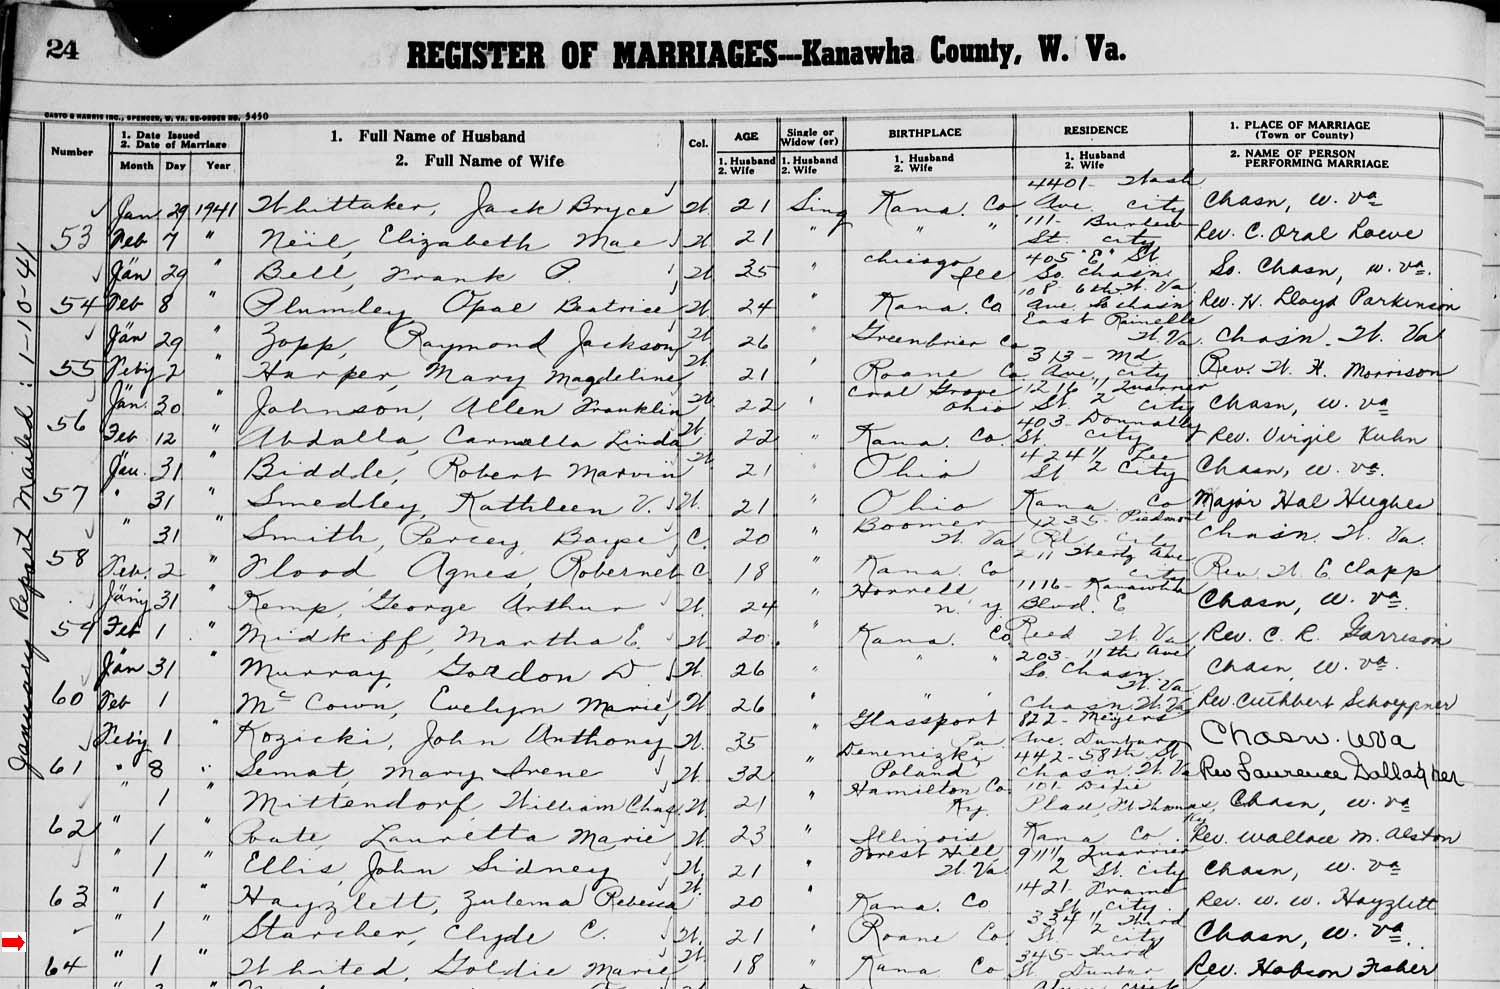 24
REGISTER OF MARRIAGES---Kanawha County, W. Va.
CASTO & HARRIS INC., SPENCER, W. VA. RE-ORDER NO. 5450
Number
1. Date Issued
2. Date of Marriage
Month Day Year
1. Full Name of Husband
2. Full Name of Wife
Col.
AGE
1. Husband
2. Wife
Single or
Widow (er)
1. Husband
2. Wife
BIRTHPLACE
1. Husband
2. Wife
RESIDENCE
1. Husband
2. Wife
1. PLACE OF MARRIAGE
(Town or County)
2. NAME OF PERSON
PERFORMING MARRIAGE
January Report Mailed: 1-10-41
Jan 29 1941 Whittaker, Jack Bryce W. 21 Sing Kana. Co 4401- Wash Ave. City Chasn, W. Va
53 Feb 7 " Neil, Elizabeth Mae W. 21 " " " 111- St. City Rev. C. Oral Lowe
Jan 29 " Bell, Frank P. W. 35 Chicago Ill 405 "E" St. So. Chasn. So. Chasn, W. Va.
54 Feb 8 " Plumley Opal Beatrice W. 24 " Kana. Co. 108 6th Ave. So Chasn W. Va Rev. H. Lloyd Parkinson
Jan 29 " Zopp, Raymond Jackson W. 26 " Greenbrier Co East Rainelle W. Va. Chasn. W. Va
55 Feby 2 " Harper, Mary Magdeline W. 21 Roane Co. 313 - Md. Ave, City Rev. W. H. Morrison
Jan. 30 " Johnson, Allen Franklin W. 22 " Coal Grove Ohio 1216 ½ Quarrier St. City Chasn, W. Va
56 Feb 12 " Abdalla, Carmella Linda W. 22 " Kana. Co. 403- Donnally St. City Rev. Virgil Kuhn
Jan. 31 " Biddle, Robert Marvin W. 21 " Ohio 424 ½ Lee St City Chasn, W. Va.
57 " 31 " Smedley, Kathleen V. W. 21 " Ohio Kana. Co Major Hal Hughes
" 31 " Smith, Percey, C. 20 " Boomer W. Va 1235- Piedmont Rd. City Chasn. W. Va.
58 Feb. 2 " Flood Agnes, C 18 " Kana. Co 211 Ave City Rev. W. E. Clapp
Jany 31 " Kemp, George Arthur W. 24 " Hornell N. Y 1116- Kanawha Blvd. E Chasn, W. Va.
59 Feb 1 " Midkiff, Martha E. W. 20. Kana. Co Reed W. Va Rev. C. R. Garrison
Jan 31 " Murray, Gordon D. W. 26 " " " 203- 11th Ave So. Chasn W. Va Chasn, W. Va.
60 Feb 1 McCown, Evelyn Marie W 26 " " " Chasn. W. Va Rev. Cuthbert Schoeppner
Feby 1 " Kozicki, John Anthony W. 35 " Glassport Pa 822- Meyers Ave. Dunbar Chasn. W Va
61 " 8 " Semat, Mary Irene W. 32 " Poland 442-58th St. Chasn. W. Va Rev Laurence Gallagher
" 1 " Mittendorf, William Chas. W. 21 " Hamilton Co. Ky. 101 Dixie Place, Ft Thomas, Ky Chasn, W. Va
62 " 1 " Lauretta Marie W. 23 " Illinois Kana Co. Rev. Wallace M. Alston
" 1 " Ellis, John Sidney W. 21 " Forest Hill W. Va. 911 ½ Quarrier St. City Chasn, W. Va
63 " 1 " Hayzlett, Zulema Rebecca W. 20 " Kana. Co 1421- St. City. Rev. W. W. Hayzlett
" 1 " Starcher, Clyde C. W. 21 " Roane Co. 334 ½ Third St City Chasn, W. Va.
64 " 1 Whited, Goldie Marie W. 18 " Kana. Co 345- Third St Dunbar Rev. Hobson Fisher